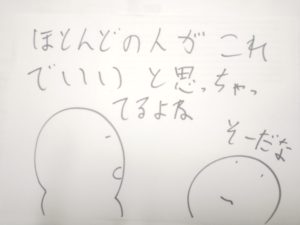 ほとんどの人が これ
でいい と思っちゃっ
てるよね
そーだな